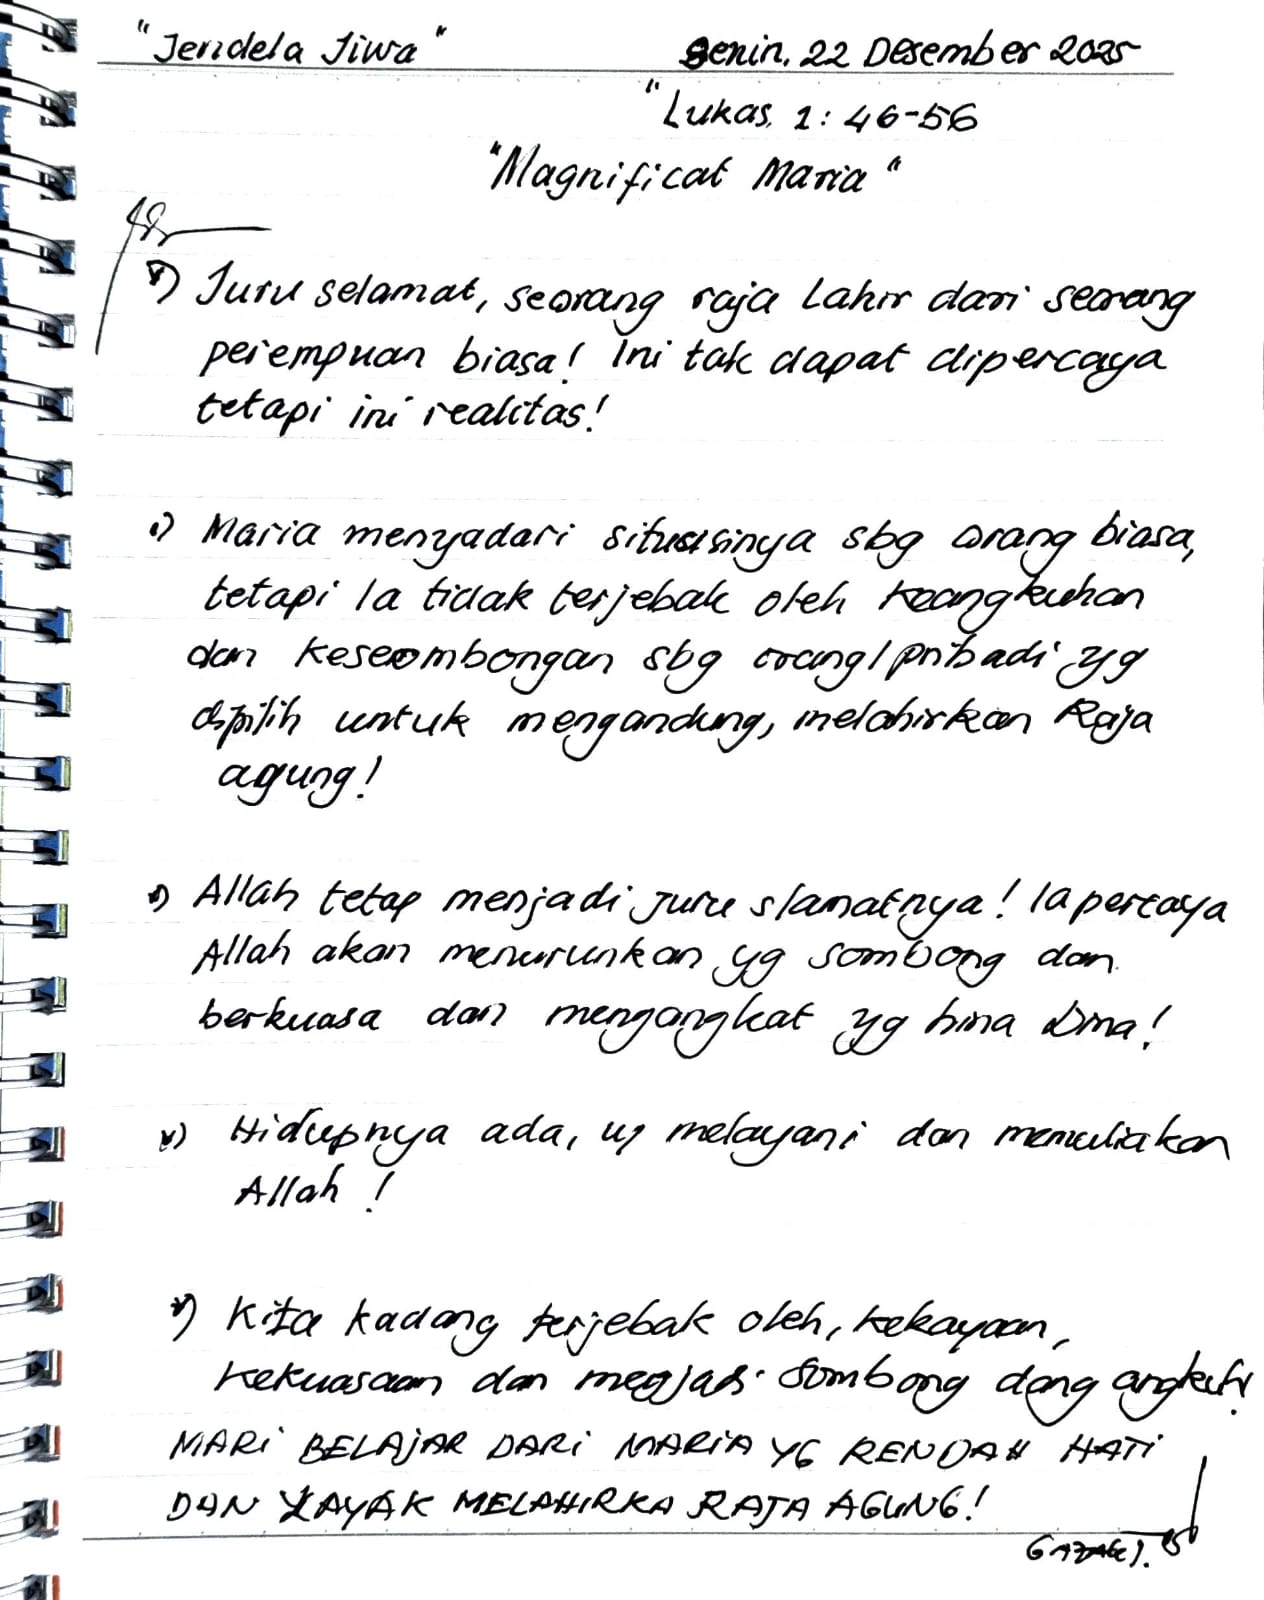 "Jendela Jiwa" Senin, 22 Desember 2025
"Lukas, 1: 46-56
"Magnificat Maria"
Juru selamat, seorang raja Lahir dari seorang
perempuan biasa! Ini tak dapat dipercaya
tetapi ini realitas!
Maria menyadari situasinya sbg orang biasa,
tetapi Ia tidak terjebak oleh Keangkuhan
dan Keseombongan sbg orang/pribadi yg
dipilih untuk mengandung, melahirkan Raja
agung!
Allah tetap menjadi Juru slamatnya! Ia percaya
Allah akan menurunkan yg sombong dan
berkuasa dan mengangkat yg hina Dina!
Hidupnya ada, melayani dan memuliakan
Allah!
Kita kadang terjebak oleh, kekayaan,
kekuasaan dan menjadi sombong dang angkuh!
MARI BELAJAR DARI MARIA YG RENDAH HATI
DAN LAYAK MELAHIRKA RAJA AGUNG!